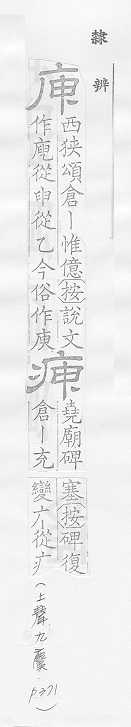 隸辨
庾
西狹頌倉丨惟億按說文
作庾從申從乙今俗作庾
堯廟碑
倉丨充
塞按碑復
變广從疒
(上聲九麌 p271)